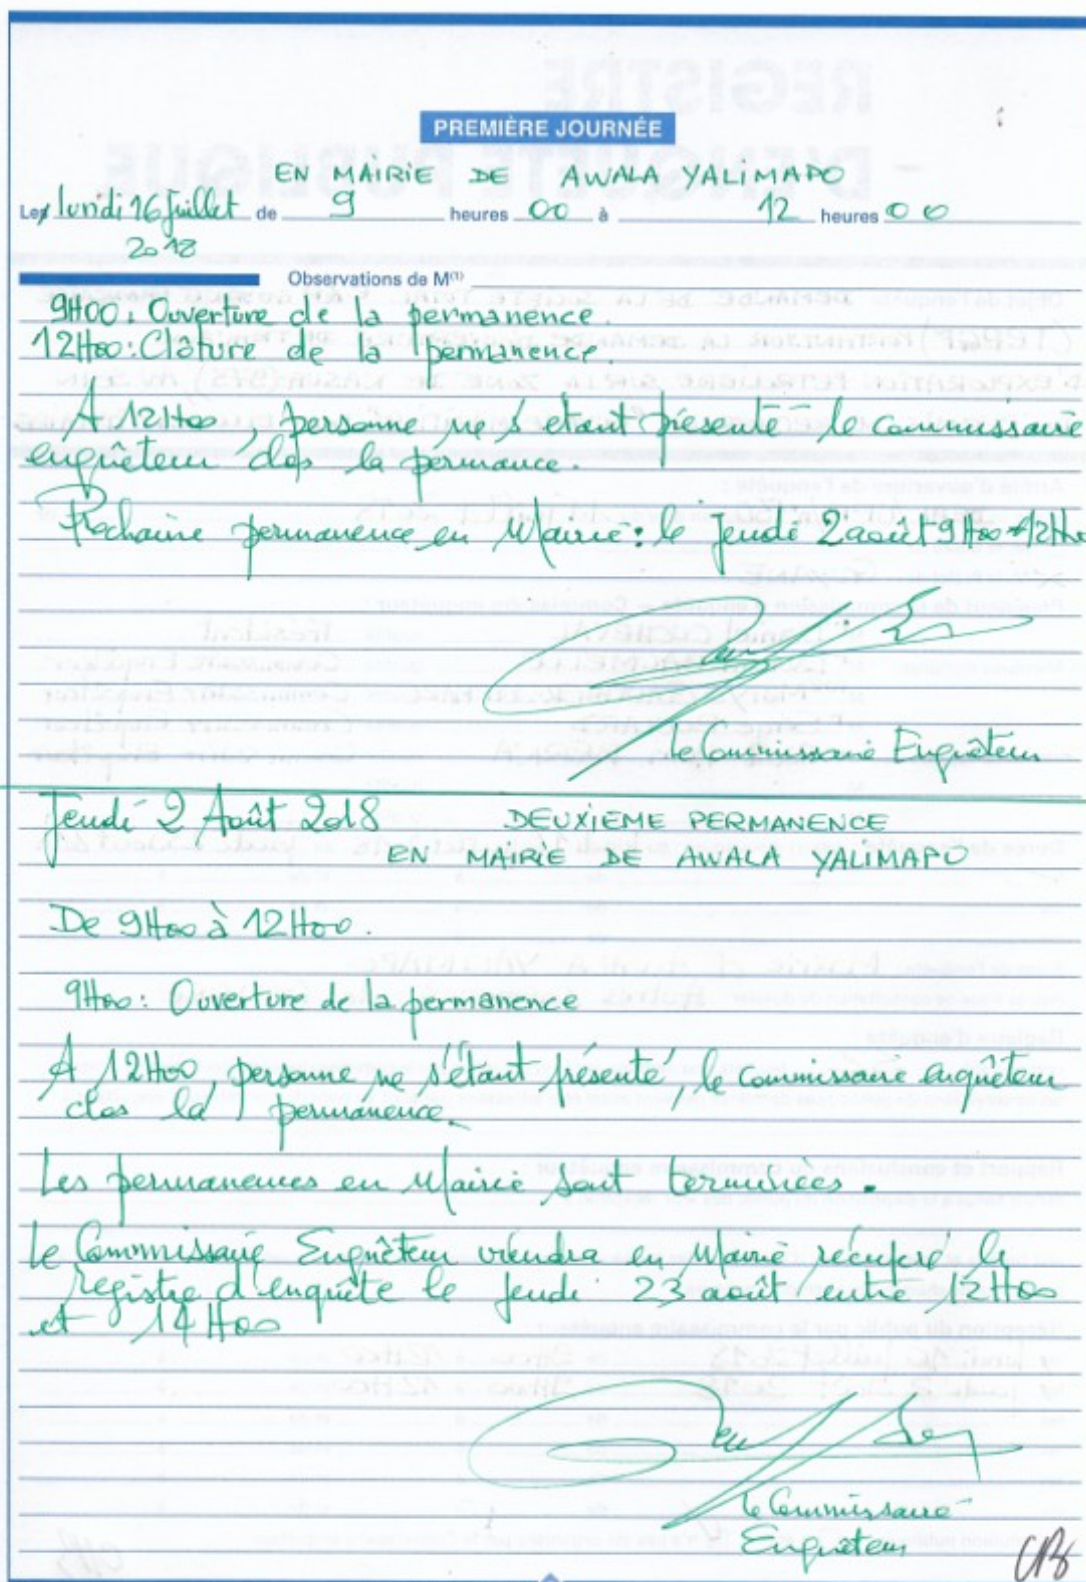 PREMIÈRE JOURNÉE
EN MAIRIE DE AWALA YALIMAPO
Les lundi 16 Juillet de 9 heures 00 à 12 heures 00
2018
Observations de M(1)
9H00: Ouverture de la permanence.
12H00: Clôture de la permanence.
A 12H00, personne ne s'etant présenté le commissaire
enquêteur clos la permance.
Prochaine permanence en Mairie: le Jeudi 2 août 9H00-12H00
Le Commissaire Enquêteur
Jeudi 2 Août 2018 DEUXIEME PERMANENCE
EN MAIRIE DE AWALA YALIMAPO
De 9H00 à 12H00.
9H00: Ouverture de la permanence
A 12H00, personne ne s'étant présenté, le commissaire enquêteur
clos la permanence.
Les permanences en Mairie sont terminées.
Le Commissaire Enquêteur viendra en Mairie récupéré le
registre d'enquête le jeudi 23 août entre 12H00
et 14H00
Le Commissaire
Enquêteur